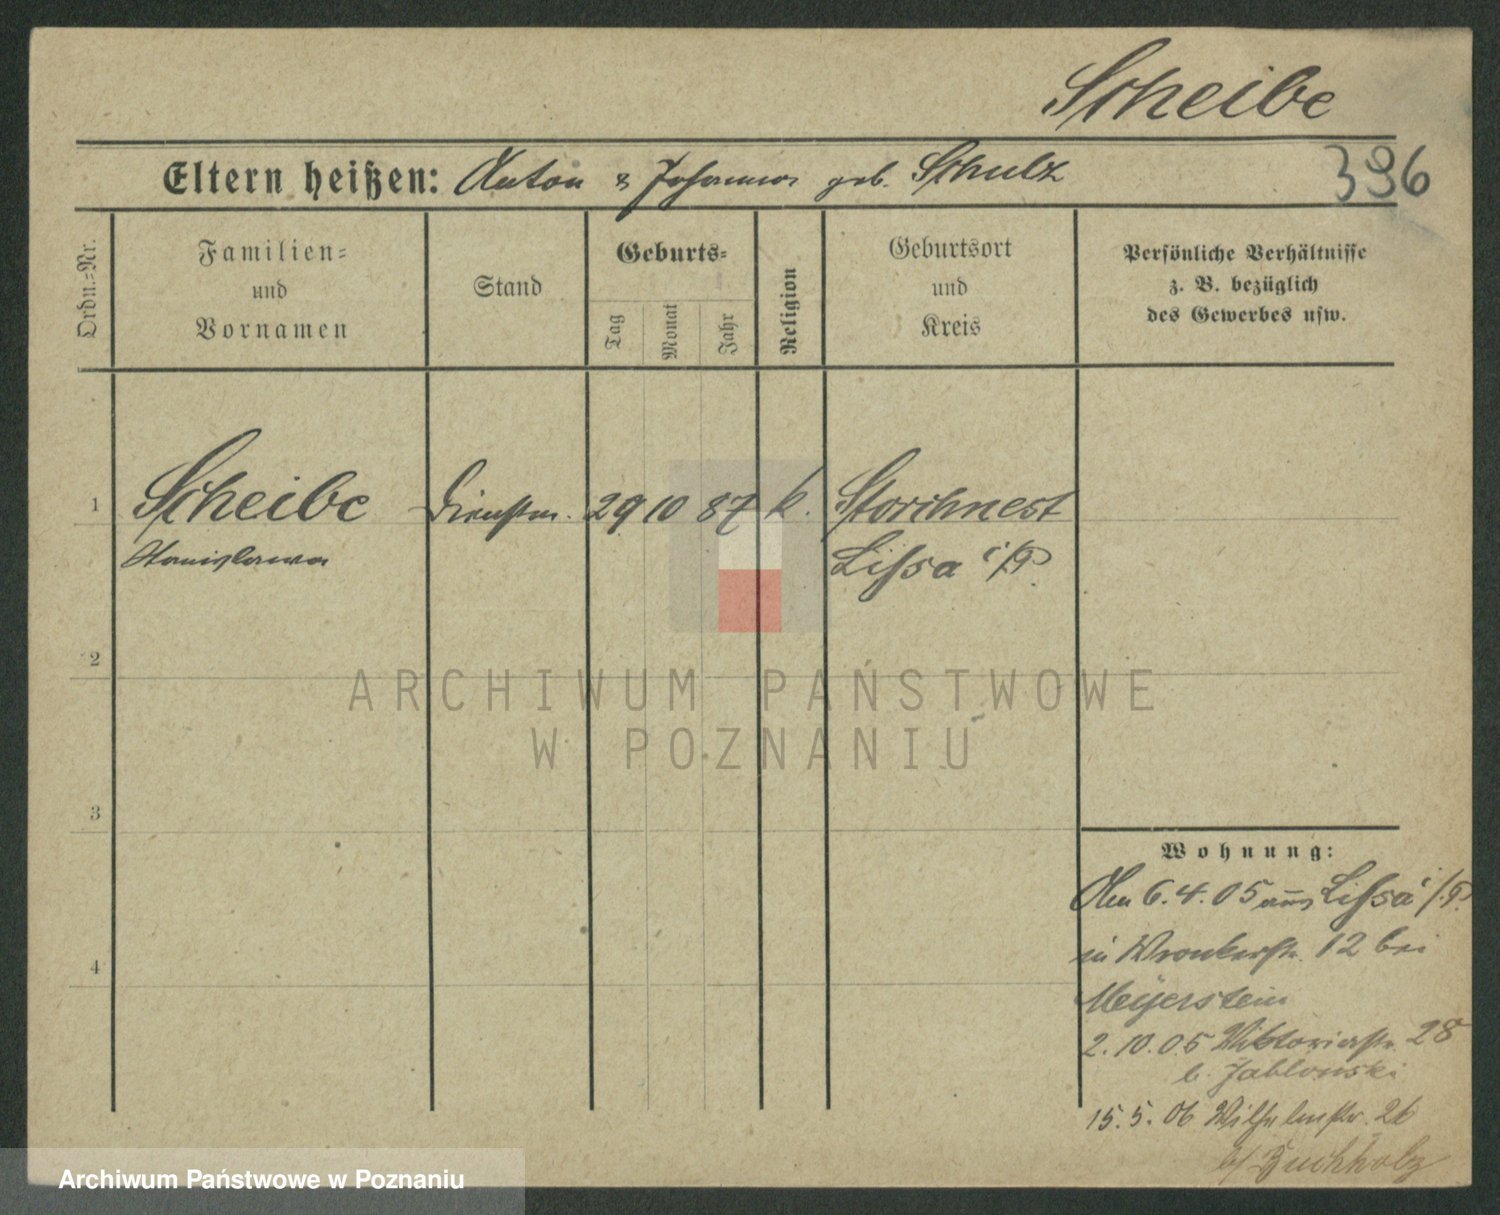 Scheibe
396
Eltern heißen: Anton & Johanna geb. Schulz
Ordn.=Nr.
Familien=
und
Vornamen
Stand
Geburts=
Tag
Monat
Jahr
Religion
Geburtsort
und
Kreis
Persönliche Verhältnisse
z. B. bezüglich
des Gewerbes usw.
1 Scheibe Dienstm. 29 10 87 k. Storchnest
Stanislawa Lissa i/P.
2
3
4
Wohnung:
Am 6.4.05 aus Lissa i/P.
in Wronkerstr. 12 bei
Meyerstein
2.10.05 Viktoriastr. 28
b. Jablonski
15.5.06 Wilhelmstr. 26
b/ Buchholz
ARCHIWUM PAŃSTWOWE
W POZNANIU
Archiwum Państwowe w Poznaniu